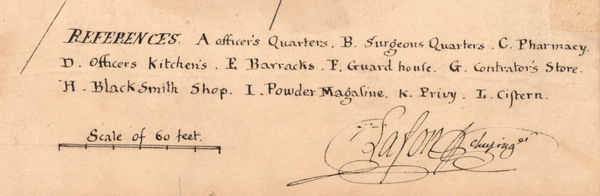 REFERENCES. A officer's Quarters. B. Surgeons Quarters. C. Pharmacy.
D. Officers Kitchen's. E Barracks. F. Guard house. G. Contrator's Store.
H. BlackSmith Shop. I. Powder Magasine. K. Privy. L. Cistern.
Scale of 60 feet.
Lafon